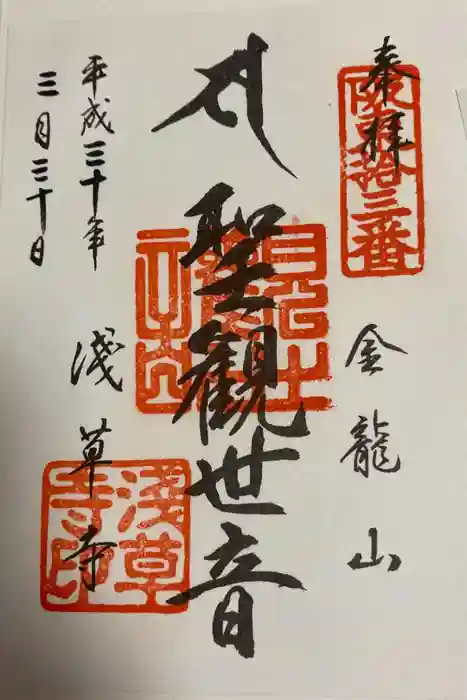 奉拝
坂東拾三番
金龍山
聖観世音
平成三十年
三月三十日
淺草寺
淺草寺印